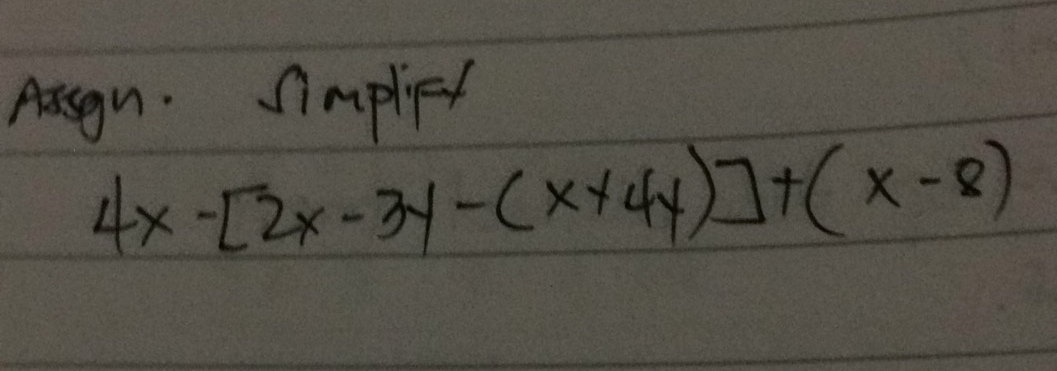 Assgn. Simplify
4x-[2x-3y-(x+4y)]+(x-8)